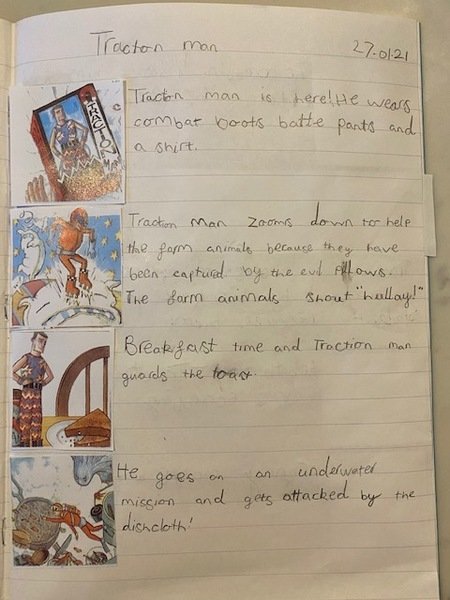 Traction man
27.01.21
TRACTION
Traction man is here! He wears
combat boots battle pants and
a shirt.
Traction Man zooms down to help
the farm animals because they have
been captured by the evil Pillows.
The farm animals shout "hullay!"
Breakfast time and Traction man
guards the toast.
He goes on an underwater
mission and gets attacked by the
dishcloth!